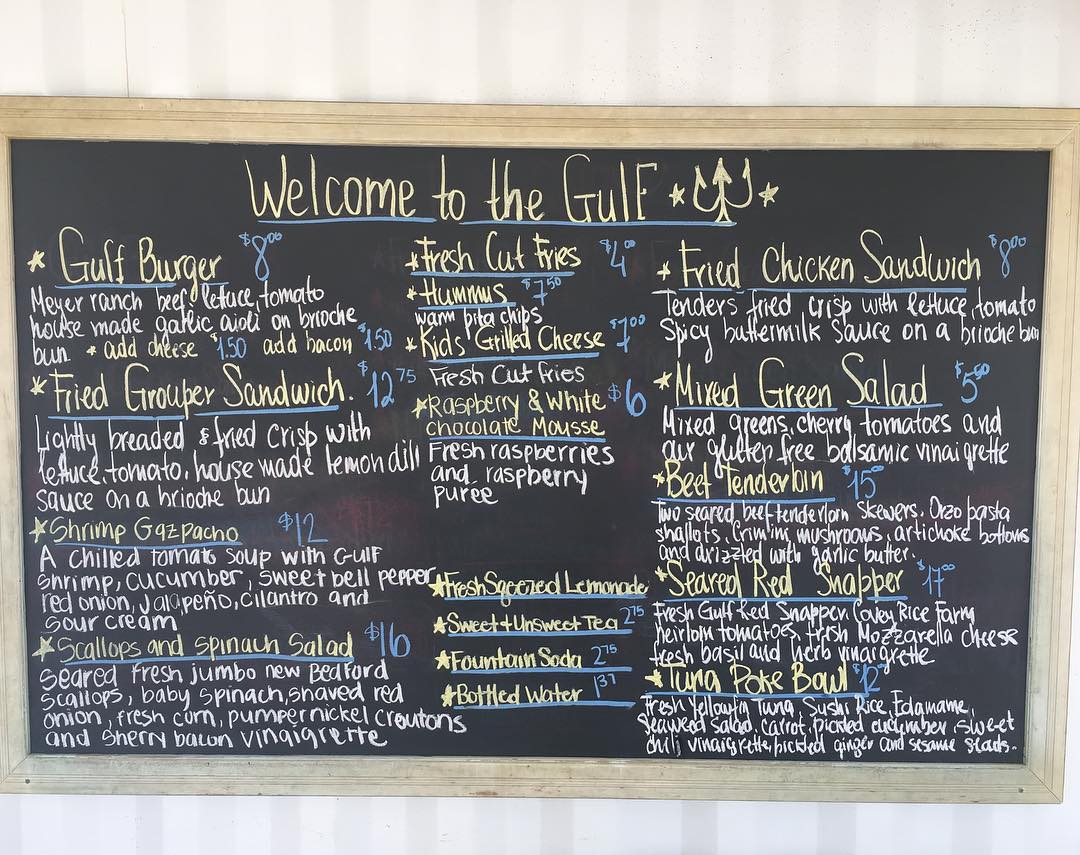 Welcome to the Gulf
Gulf Burger $8.00
Meyer ranch beef, lettuce, tomato
house made garlic aioli on brioche
bun * add cheese $1.50 add bacon $1.50
Fried Grouper Sandwich. $12.75
Lightly breaded & fried crisp with
lettuce, tomato, house made lemon dill
sauce on a brioche bun
Shrimp Gazpacho $12
A chilled tomato soup with Gulf
shrimp, cucumber, sweet bell pepper,
red onion, Jalapeño, cilantro and
sour cream
Scallops and spinach Salad $16
Seared fresh jumbo new Bedford
scallops, baby spinach, shaved red
onion, fresh corn, pumpernickel croutons
and Sherry bacon vinaigrette
Fresh Cut Fries $4.00
Hummus $7.50
warm pita chips
Kids Grilled Cheese $7.00
Fresh Cut fries
Raspberry & White $6
Chocolate Mousse
Fresh raspberries
and raspberry
puree
Fresh Sqeezed Lemonade
Sweet + Unsweet Tea 2.75
Fountain Soda 2.75
Bottled Water 1.37
Fried Chicken Sandwich $8.00
Tenders fried crisp with lettuce, tomato
Spicy buttermilk sauce on a brioche bun
Mixed Green Salad $5.50
Mixed greens, cherry tomatoes and
our glutten free balsamic vinaigrette
Beef Tenderloin $15.00
Two seared beef tenderloin skewers. Orzo pasta
shallots, Crimini mushrooms, artichoke bottoms
and drizzted with garlic butter.
Seared Red Snapper $17.00
Fresh Gulf Red Snapper, Covey Rice Farm
heirlom tomatoes, fresh Mozzarella cheese
fresh basil and herb vinaigrette
Tuna Poke Bowl $12
Fresh Yellowfin Tuna, Sushi Rice, Edamame,
Seaweed salad, carrot, pickled cucumber, sweet
chili vinaigrette, pickled ginger and sesame seeds.